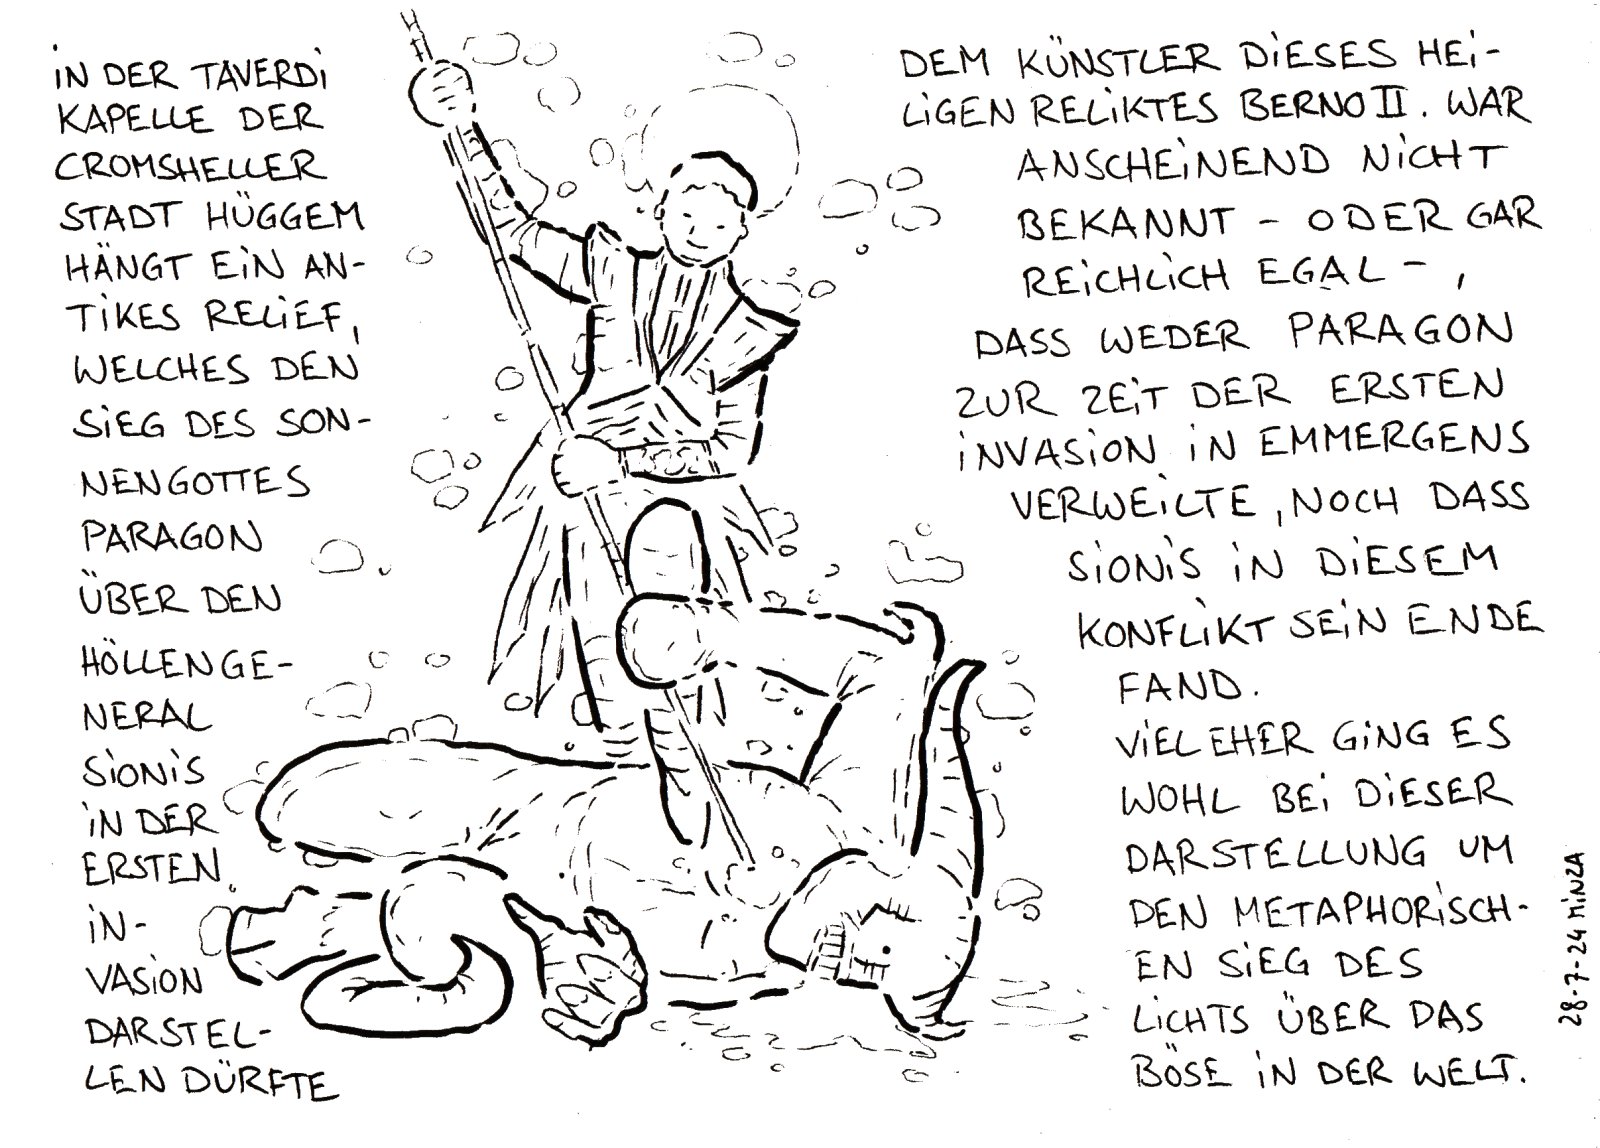 IN DER TAVERDI
KAPELLE DER
CROMSHELLER
STADT HÜGGEM
HÄNGT EIN AN-
TIKES RELIEF,
WELCHES DEN
SIEG DES SON-
NENGOTTES
PARAGON
ÜBER DEN
HÖLLENGE-
NERAL
SIONIS
IN DER
ERSTEN
IN-
VASION
DARSTEL-
LEN DÜRFTE
DEM KÜNSTLER DIESES HEI-
LIGEN RELIKTES BERNO II. WAR
ANSCHEINEND NICHT
BEKANNT - ODER GAR
REICHLICH EGAL - ,
DASS WEDER PARAGON
ZUR ZEIT DER ERSTEN
INVASION IN EMMERGENS
VERWEILTE, NOCH DASS
SIONIS IN DIESEM
KONFLIKT SEIN ENDE
FAND.
VIEL EHER GING ES
WOHL BEI DIESER
DARSTELLUNG UM
DEN METAPHORISCH-
EN SIEG DES
LICHTS ÜBER DAS
BÖSE IN DER WELT.
28-7-24 MINZA